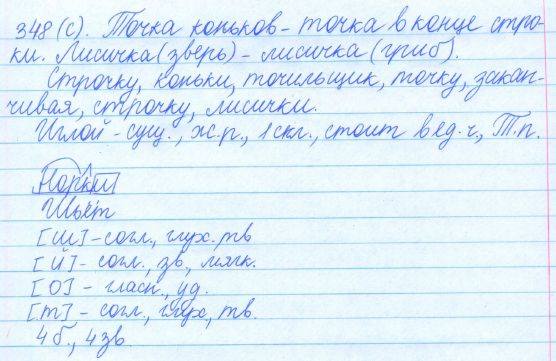 348 (с). Точка коньков - точка в конце стро-
ки. Лисичка (зверь) - лисичка (гриб).
Строчку, коньки, точильщик, точку, закан-
чивая, строчку, лисички.
Иглой - сущ., ж.р., 1 скл., стоит в ед.ч., Т.п.
Норки
Шьёт
[Ш] - согл., глух. тв
[Й] - согл., зв, мягк.
[О] - гласн., уд.
[т] - согл., глух., тв.
4 б., 4 зв.